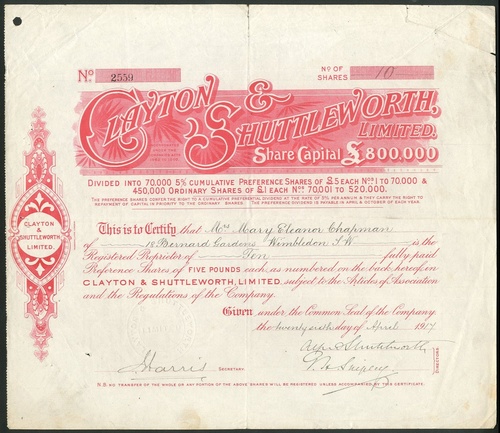 No. 2559
No OF SHARES 10
CLAYTON & SHUTTLEWORTH, LIMITED.
INCORPORATED UNDER THE COMPANIES ACTS
Share Capital £800,000
DIVIDED INTO 70,000 5% CUMULATIVE PREFERENCE SHARES OF £5 EACH Nos 1 TO 70,000 &
450,000 ORDINARY SHARES OF £1 EACH Nos 70,001 TO 520,000.
THE PREFERENCE SHARES CONFER THE RIGHT TO A CUMULATIVE PREFERENTIAL DIVIDEND AT THE RATE OF 5% PER ANNUM & THEY CARRY THE RIGHT TO
REPAYMENT OF CAPITAL IN PRIORITY TO THE ORDINARY SHARES. THE PREFERENCE DIVIDEND IS PAYABLE IN APRIL & OCTOBER OF EACH YEAR.
CLAYTON & SHUTTLEWORTH LIMITED.
This is to Certify that Mrs Mary Eleanor Chapman
of 18 Bernard Gardens Wimbledon S.W. is the
Registered Proprietor of Ten fully paid
Preference Shares of FIVE POUNDS each, as numbered on the back hereof, in
CLAYTON & SHUTTLEWORTH, LIMITED, subject to the Articles of Association
and the Regulations of the Company.
Given under the Common Seal of the Company,
the twenty sixth day of April 1917
Shuttleworth
Harris SECRETARY.
DIRECTORS
N.B. NO TRANSFER OF THE WHOLE OR ANY PORTION OF THE ABOVE SHARES WILL BE REGISTERED UNLESS ACCOMPANIED BY THIS CERTIFICATE.